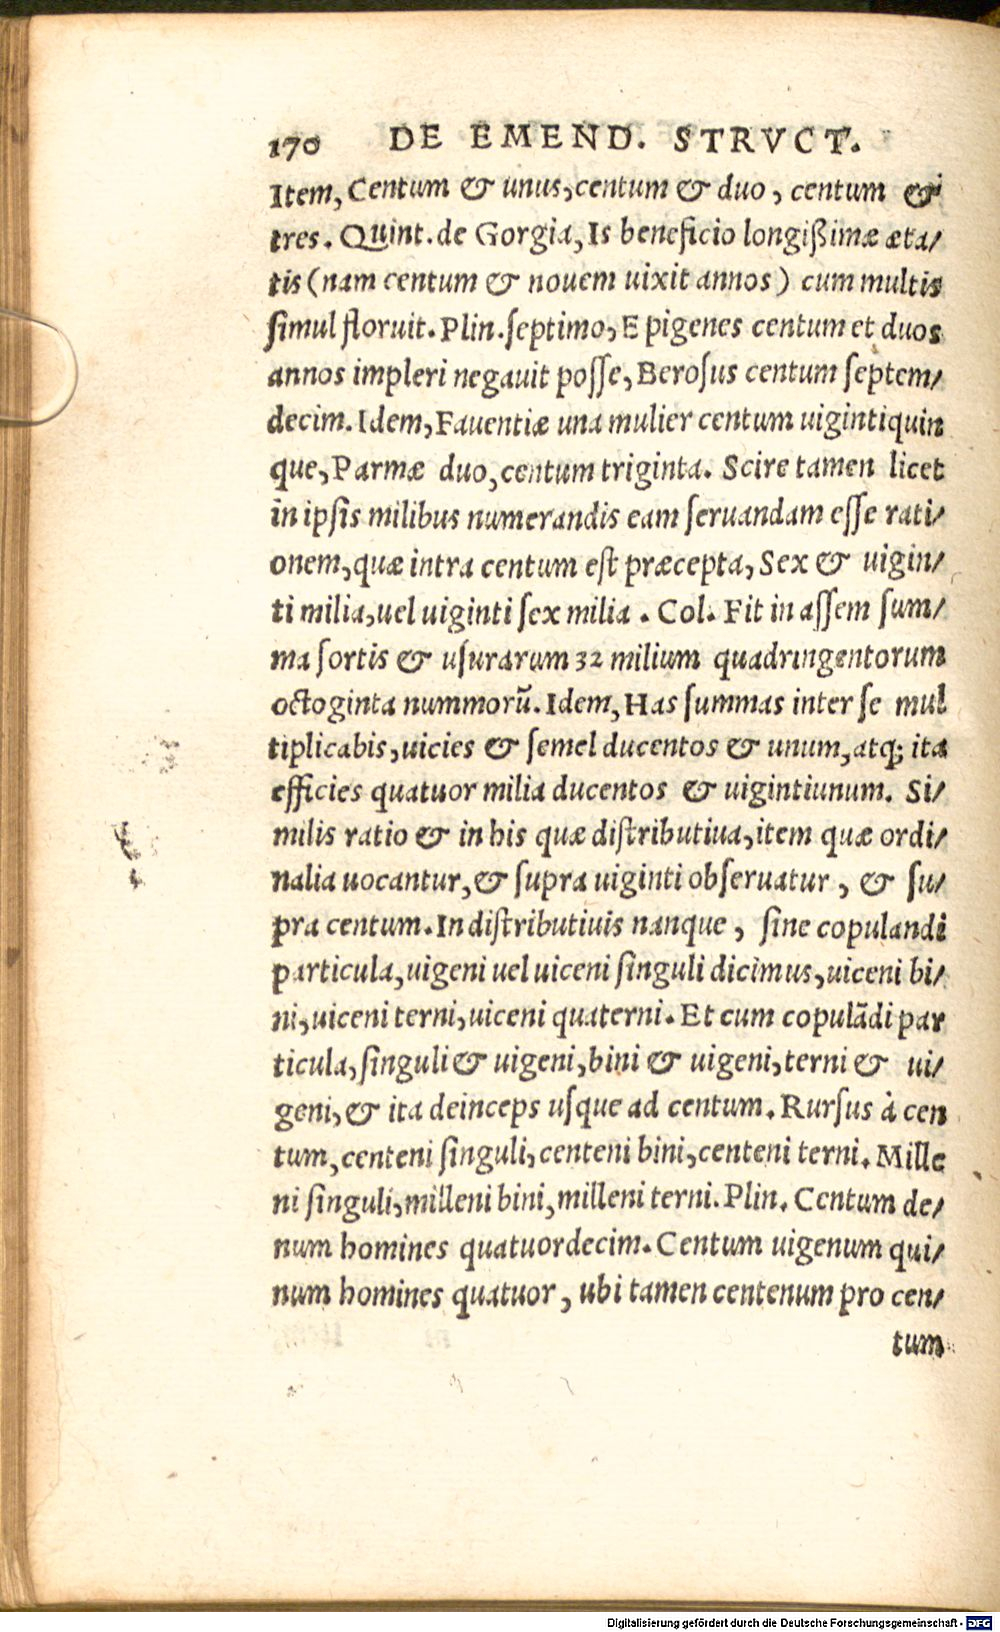 170 DE EMEND. STRVCT.
Item, Centum & unus, centum & duo, centum &
tres. Quint. de Gorgia, Is beneficio longißimæ æta/
tis (nam centum & nouem uixit annos) cum multis
ſimul floruit. Plin. ſeptimo, Epigenes centum et duos
annos impleri negauit poſſe, Beroſus centum ſeptem/
decim. Idem, Fauentiæ una mulier centum uigintiquin
que, Parmæ duo, centum triginta. Scire tamen licet
in ipſis milibus numerandis eam ſeruandam eſſe rati/
onem, quæ intra centum eſt præcepta, Sex & uigin/
ti milia, uel uiginti ſex milia . Col. Fit in aſſem ſum/
ma ſortis & uſurarum 32 milium quadringentorum
octoginta nummorũ. Idem, Has ſummas inter ſe mul
tiplicabis, uicies & ſemel ducentos & unum, atq; ita
efficies quatuor milia ducentos & uigintiunum. Si/
milis ratio & in his quæ diſtributiua, item quæ ordi/
nalia uocantur, & ſupra uiginti obſeruatur , & ſu/
pra centum. In diſtributiuis nanque , ſine copulandi
particula, uigeni uel uiceni ſinguli dicimus, uiceni bi/
ni, uiceni terni, uiceni quaterni. Et cum copulãdi par
ticula, ſinguli & uigeni, bini & uigeni, terni & ui/
geni, & ita deinceps uſque ad centum. Rurſus à cen
tum, centeni ſinguli, centeni bini, centeni terni. Mille
ni ſinguli, milleni bini, milleni terni. Plin. Centum de/
num homines quatuordecim. Centum uigenum qui/
num homines quatuor , ubi tamen centenum pro cen/
tum
Digitalisierung gefördert durch die Deutsche Forschungsgemeinschaft - DFG